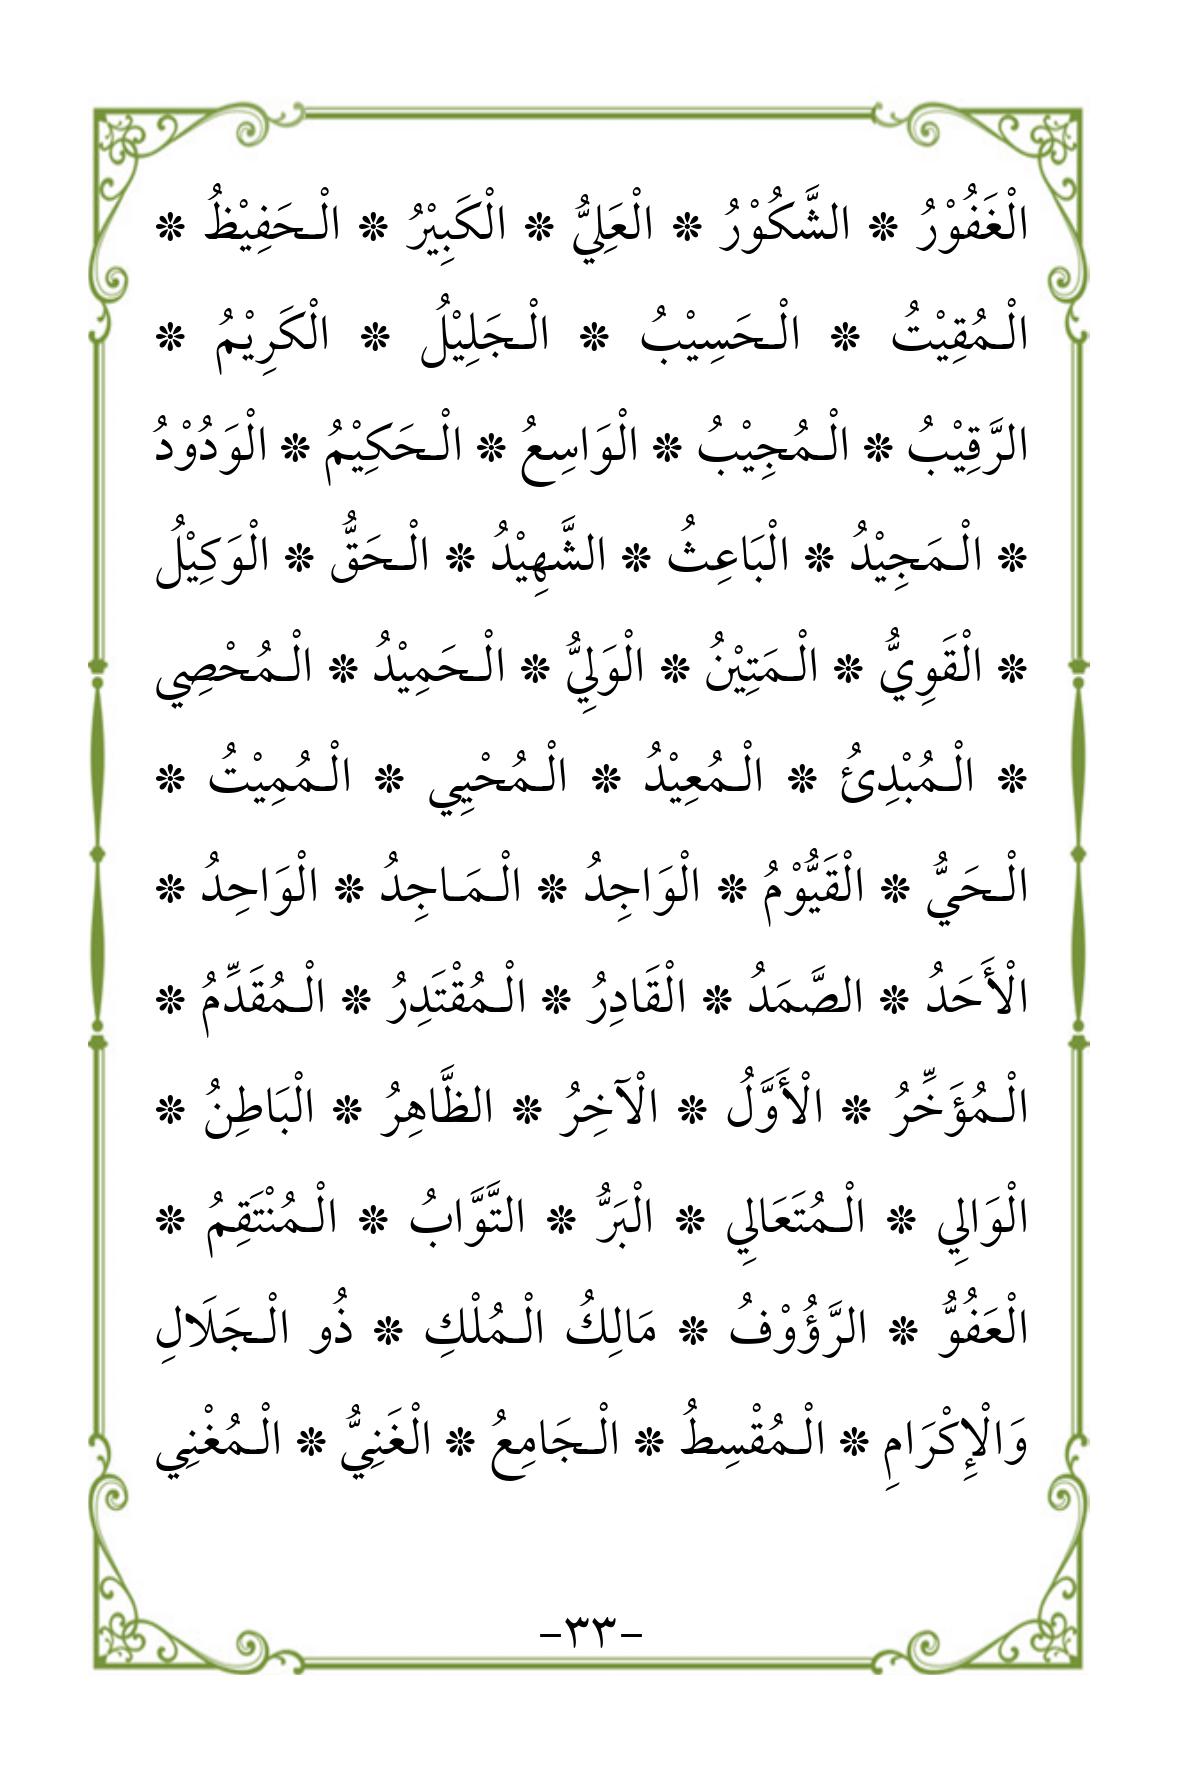 الْغَفُوْرُ ❊ الشَّكُوْرُ ❊ الْعَلِيُّ ❊ الْكَبِيْرُ ❊ الْـحَفِيْظُ ❊
الْـمُقِيْتُ ❊ الْـحَسِيْبُ ❊ الْـجَلِيْلُ ❊ الْكَرِيْمُ ❊
الرَّقِيْبُ ❊ الْـمُجِيْبُ ❊ الْوَاسِعُ ❊ الْـحَكِيْمُ ❊ الْوَدُوْدُ
❊ الْـمَجِيْدُ ❊ الْبَاعِثُ ❊ الشَّهِيْدُ ❊ الْـحَقُّ ❊ الْوَكِيْلُ
❊ الْقَوِيُّ ❊ الْـمَتِيْنُ ❊ الْوَلِيُّ ❊ الْـحَمِيْدُ ❊ الْـمُحْصِي
❊ الْـمُبْدِئُ ❊ الْـمُعِيْدُ ❊ الْـمُحْيِي ❊ الْـمُمِيْتُ ❊
الْـحَيُّ ❊ الْقَيُّوْمُ ❊ الْوَاجِدُ ❊ الْـمَـاجِدُ ❊ الْوَاحِدُ ❊
الْأَحَدُ ❊ الصَّمَدُ ❊ الْقَادِرُ ❊ الْـمُقْتَدِرُ ❊ الْـمُقَدِّمُ ❊
الْـمُؤَخِّرُ ❊ الْأَوَّلُ ❊ الْآخِرُ ❊ الظَّاهِرُ ❊ الْبَاطِنُ ❊
الْوَالِي ❊ الْـمُتَعَالِي ❊ الْبَرُّ ❊ التَّوَّابُ ❊ الْـمُنْتَقِمُ ❊
الْعَفُوُّ ❊ الرَّؤُوْفُ ❊ مَالِكُ الْـمُلْكِ ❊ ذُو الْـجَلَالِ
وَالْإِكْرَامِ ❊ الْـمُقْسِطُ ❊ الْـجَامِعُ ❊ الْغَنِيُّ ❊ الْـمُغْنِي
-٣٣-